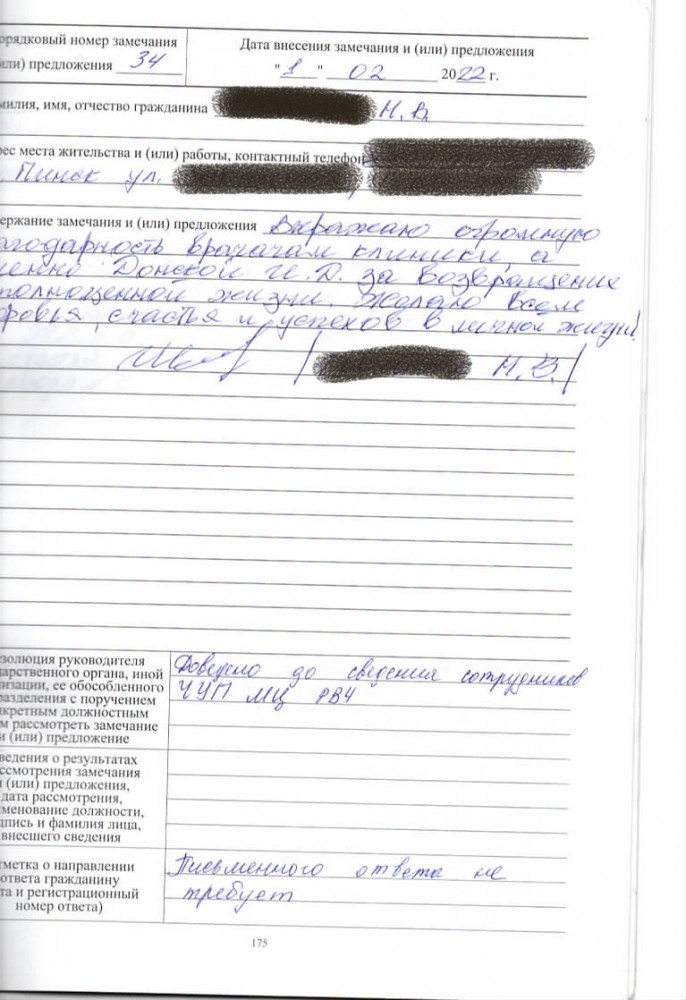 орядковый номер замечания
или) предложения 34
Дата внесения замечания и (или) предложения
"1" 02 2022 г.
милия, имя, отчество гражданина Н. В.
рес места жительства и (или) работы, контактный телефон
. Пинск ул.
держание замечания и (или) предложения Выражаю огромную
агодарность врачам клиники, а
менно Донской И. Д. за возвращение
полноценной жизни. Желаю всем
оровья, счастья и успехов в личной жизни!
/ Н. В. /
золюция руководителя
дарственного органа, иной
низации, ее обособленного
разделения с поручением
нкретным должностным
м рассмотреть замечание
и (или) предложение
Доведено до сведения сотрудников
ЧУП МЦ РВЧ
ведения о результатах
ссмотрения замечания
и (или) предложения,
дата рассмотрения,
менование должности,
дпись и фамилия лица,
внесшего сведения
тметка о направлении
ответа гражданину
та и регистрационный
номер ответа)
Письменного ответа не
требует
175